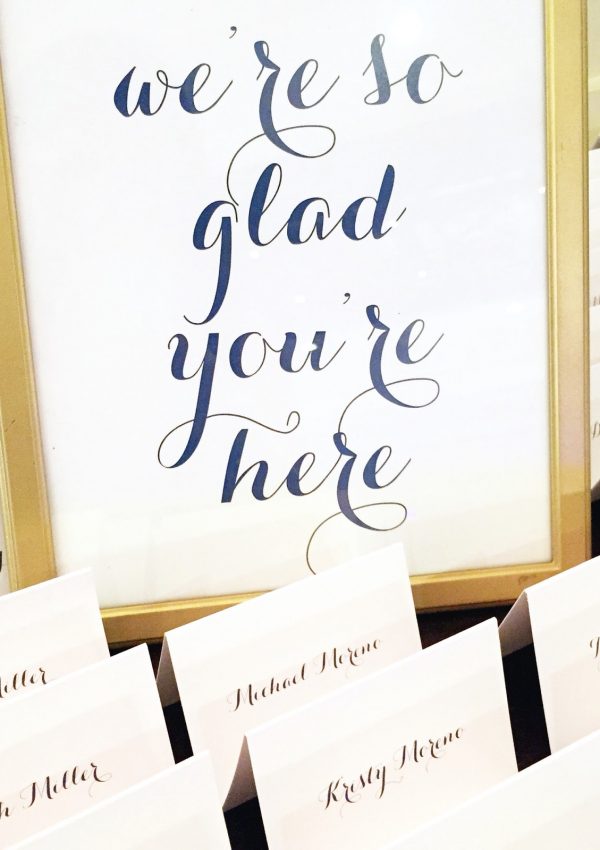 we're so
glad
you're
here
Michael Moreno
Kristy Moreno
Meller